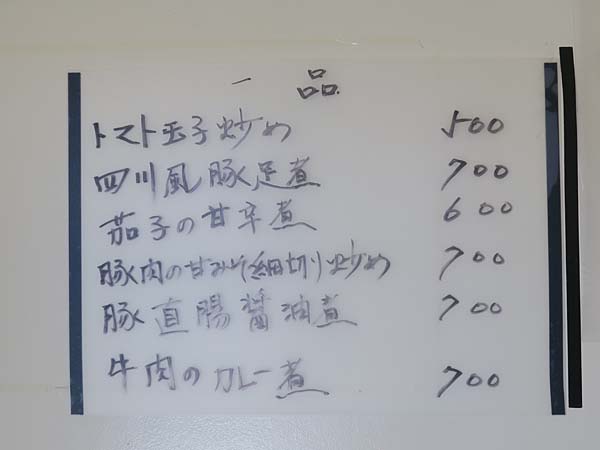 一品
トマト玉子炒め 500
四川風豚足煮 700
茄子の甘辛煮 600
豚肉の甘みそ細切り炒め 700
豚直腸醤油煮 700
牛肉のカレー煮 700